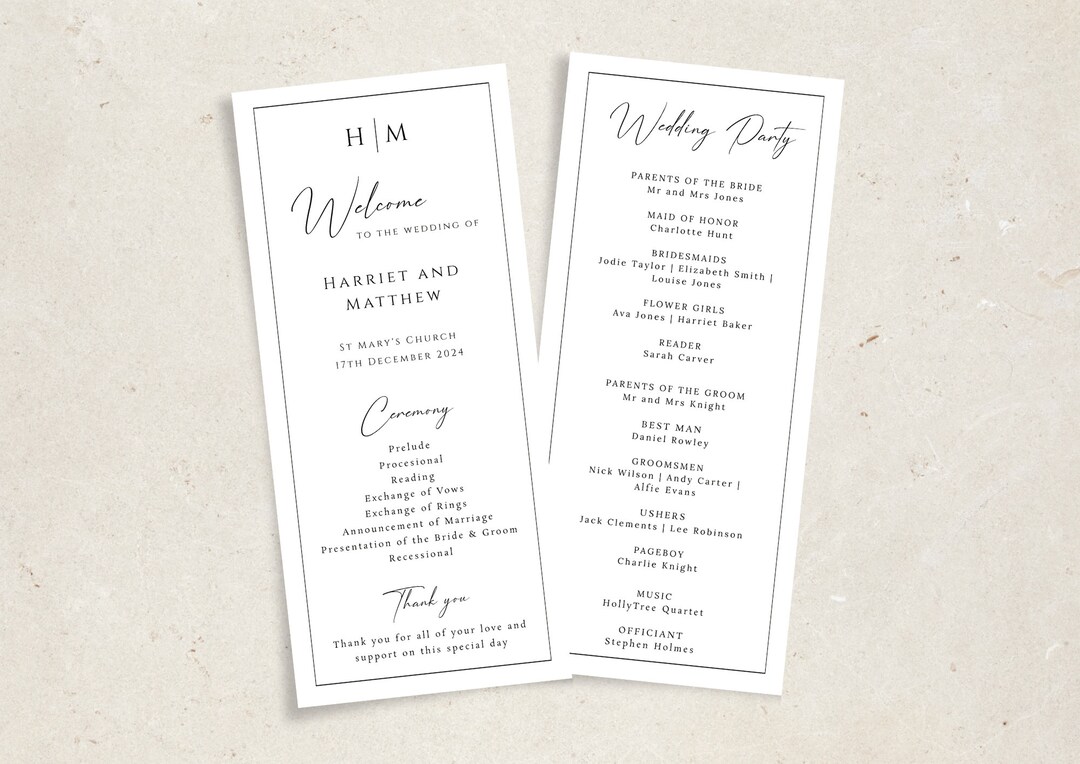 H|M
Welcome
TO THE WEDDING OF
HARRIET AND
MATTHEW
ST MARY'S CHURCH
17TH DECEMBER 2024
Ceremony
Prelude
Procesional
Reading
Exchange of Vows
Exchange of Rings
Announcement of Marriage
Presentation of the Bride & Groom
Recessional
Thank you
Thank you for all of your love and
support on this special day
Wedding Party
PARENTS OF THE BRIDE
Mr and Mrs Jones
MAID OF HONOR
Charlotte Hunt
BRIDESMAIDS
Jodie Taylor | Elizabeth Smith |
Louise Jones
FLOWER GIRLS
Ava Jones | Harriet Baker
READER
Sarah Carver
PARENTS OF THE GROOM
Mr and Mrs Knight
BEST MAN
Daniel Rowley
GROOMSMEN
Nick Wilson | Andy Carter |
Alfie Evans
USHERS
Jack Clements | Lee Robinson
PAGEBOY
Charlie Knight
MUSIC
HollyTree Quartet
OFFICIANT
Stephen Holmes